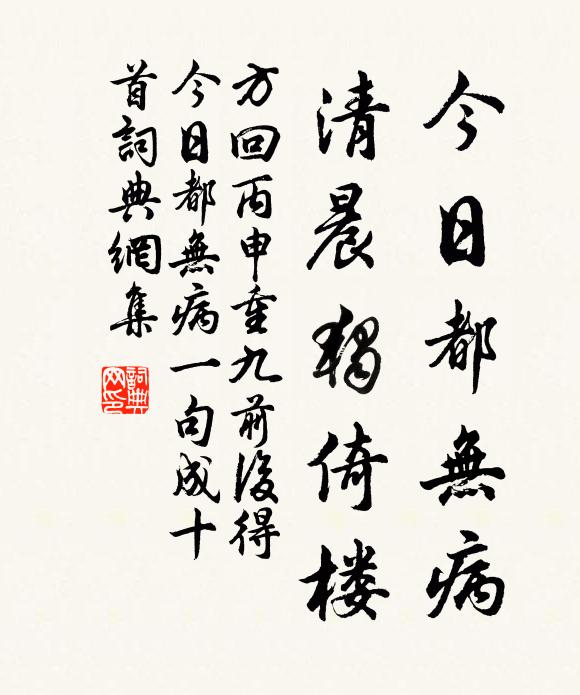 今日都無病
清晨獨倚楼
方回丙申重九前後得
今日都無病一句成十
首詞典網集
詞典
网印